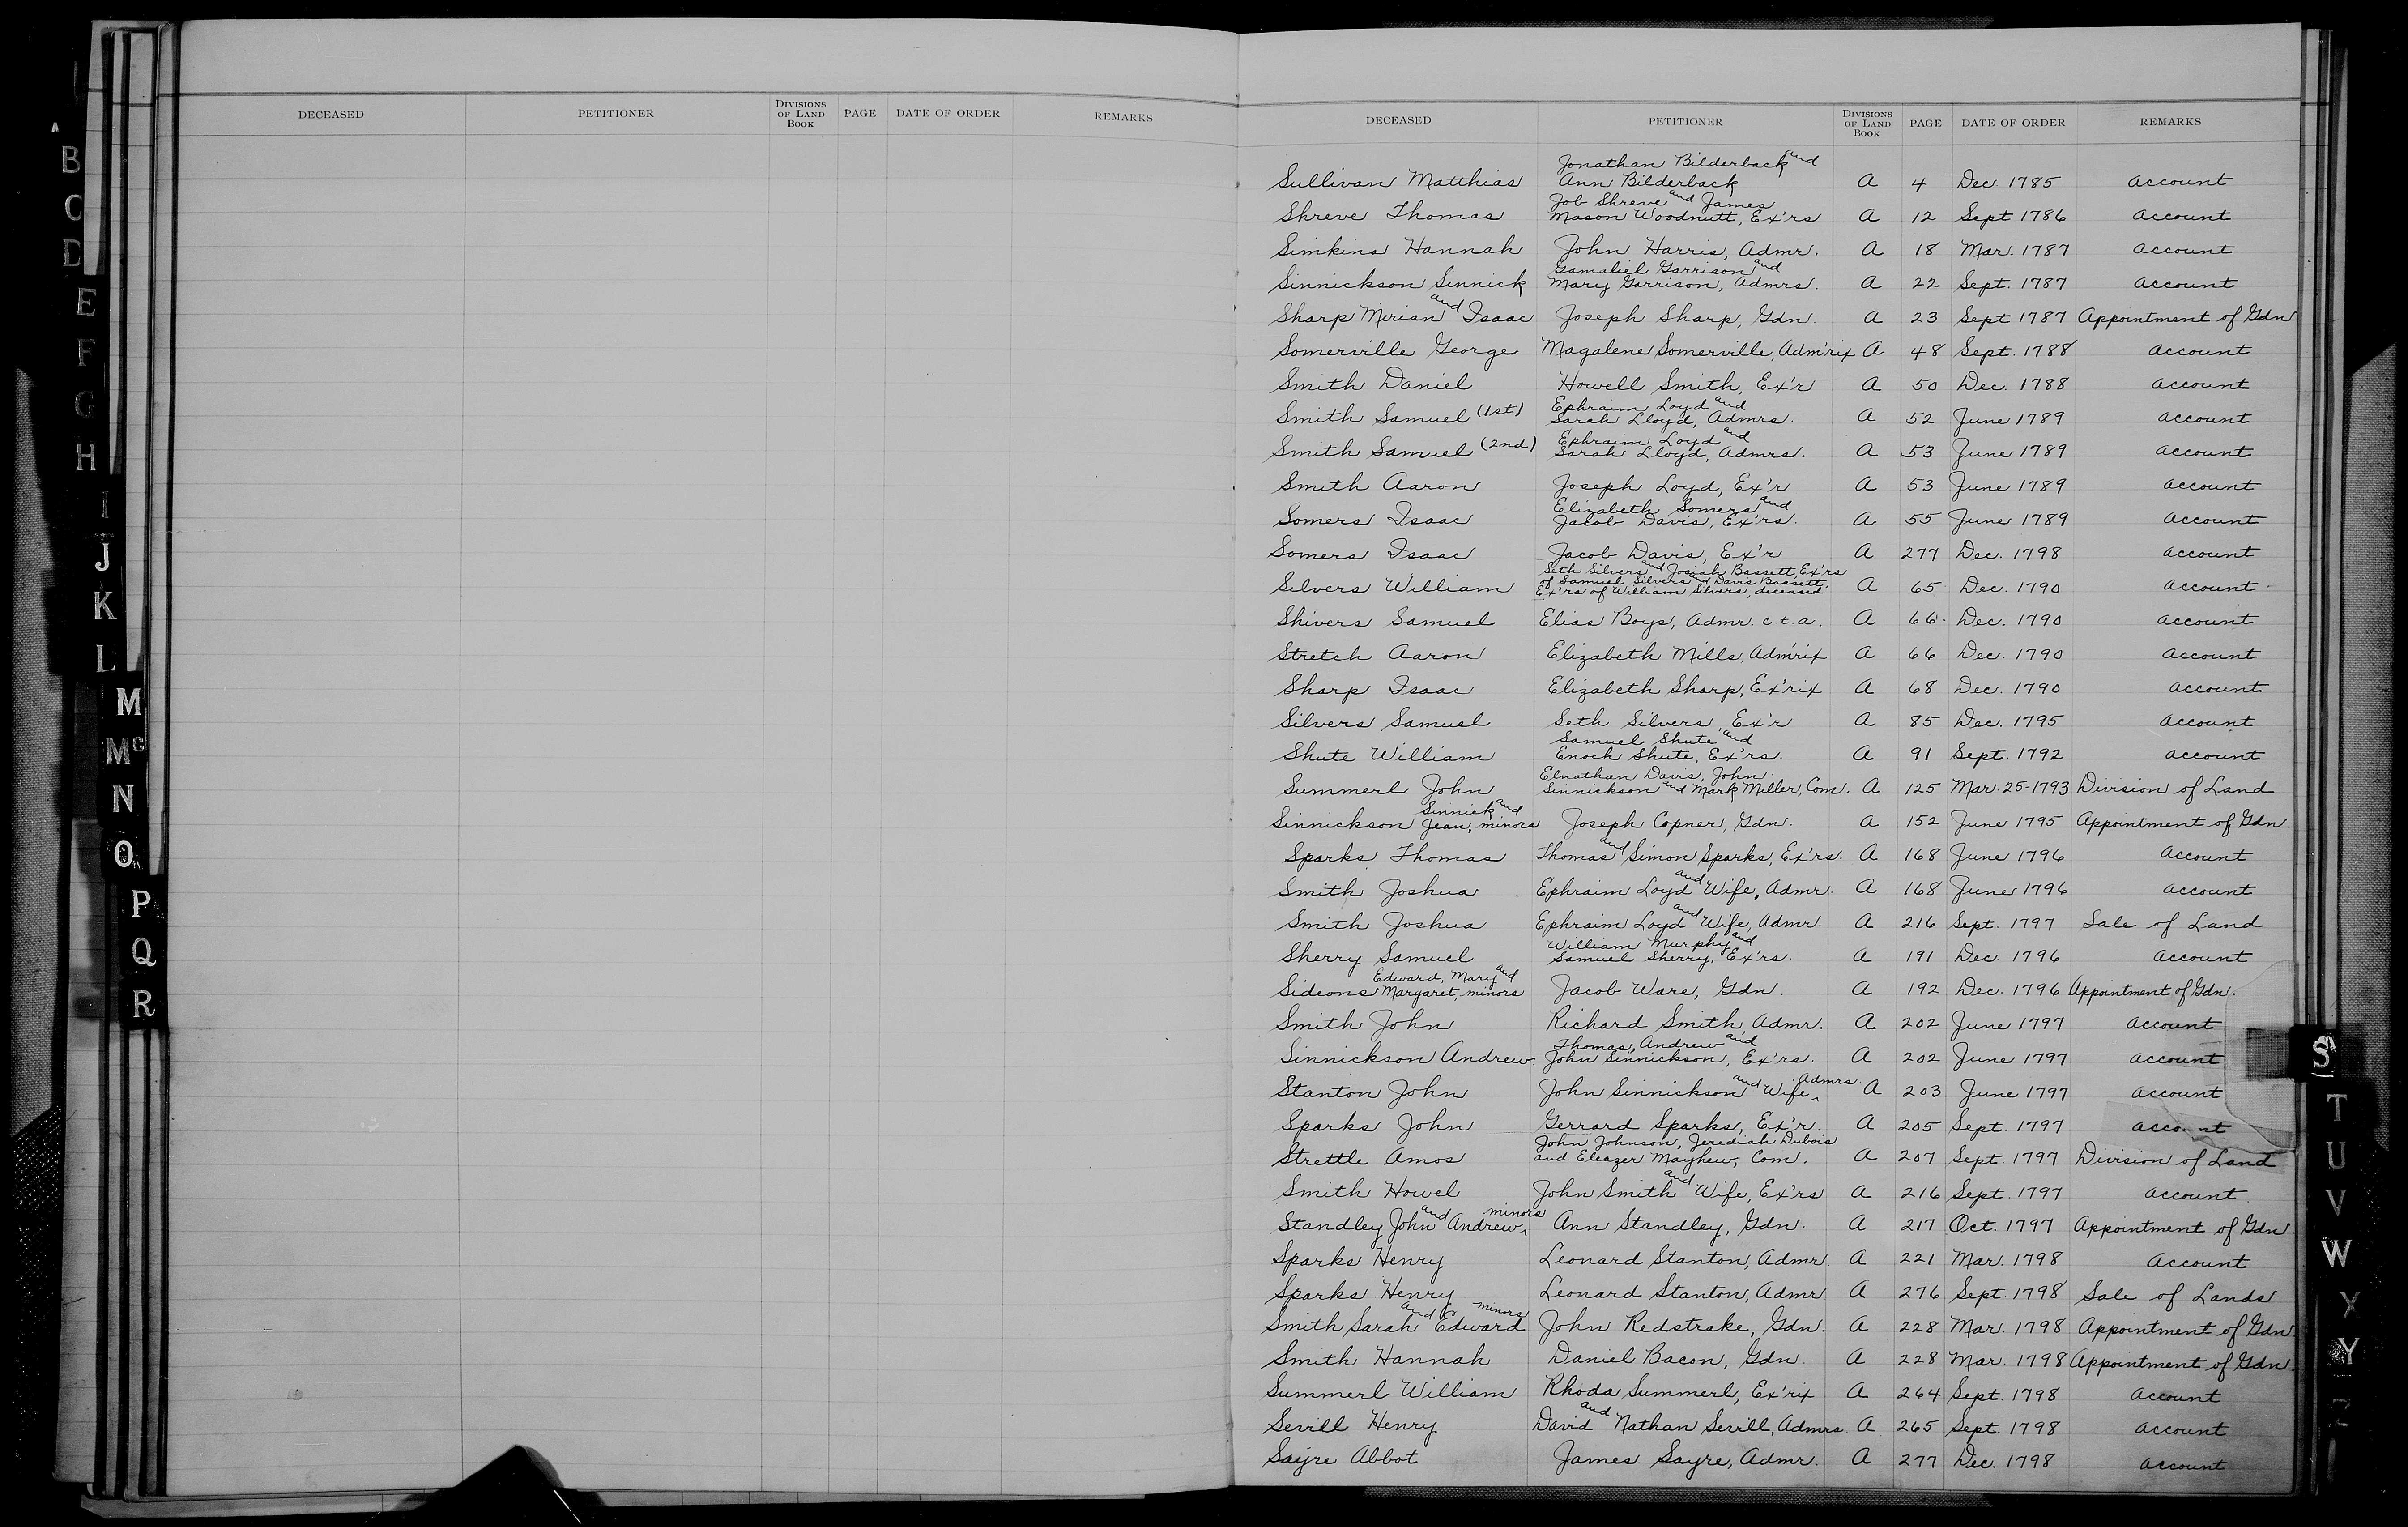 DECEASED PETITIONER DIVISIONS OF LAND BOOK PAGE DATE OF ORDER REMARKS
DECEASED PETITIONER DIVISIONS OF LAND BOOK PAGE DATE OF ORDER REMARKS
Sullivan Matthias Jonathan Bilderback and Ann Bilderback A 4 Dec. 1785 Account
Shreve Thomas Job Shreve and James Mason Woodnutt, Ex'rs A 12 Sept 1786 Account
Simkins Hannah John Harris, Admr. A 18 Mar. 1787 Account
Sinnickson Sinnick Gamaliel Garrison and Mary Garrison, Admrs. A 22 Sept. 1787 Account
Sharp Mirian and Isaac Joseph Sharp, Gdn. A 23 Sept 1787 Appointment of Gdn
Somerville George Magalene Somerville, Adm'rix A 48 Sept. 1788 Account
Smith Daniel Howell Smith, Ex'r A 50 Dec. 1788 Account
Smith Samuel (1st) Ephraim Loyd and Sarah Lloyd, Admrs. A 52 June 1789 Account
Smith Samuel (2nd) Ephraim Loyd and Sarah Lloyd, Admrs. A 53 June 1789 Account
Smith Aaron Joseph Loyd, Ex'r A 53 June 1789 Account
Somers Isaac Elizabeth Somers and Jacob Davis, Ex'rs. A 55 June 1789 Account
Somers Isaac Jacob Davis, Ex'r A 277 Dec. 1798 Account
Silvers William Seth Silvers and Josiah Bassett, Ex'rs of Samuel Silvers and Davis Bassett, Ex'rs of William Silvers, deceased A 65 Dec. 1790 Account
Shivers Samuel Elias Boys, Admr. c.t.a. A 66 Dec. 1790 Account
Stretch Aaron Elizabeth Mills, Adm'rix A 66 Dec. 1790 Account
Sharp Isaac Elizabeth Sharp, Ex'rix A 68 Dec. 1790 Account
Silvers Samuel Seth Silvers, Ex'r A 85 Dec. 1795 Account
Shute William Samuel Shute and Enoch Shute, Ex'rs. A 91 Sept. 1792 Account
Summerl John Elnathan Davis, John Sinnickson and Mark Miller, Com. A 125 Mar. 25-1793 Division of Land
Sinnickson Sinnick and Jean, minors Joseph Copner, Gdn. A 152 June 1795 Appointment of Gdn.
Sparks Thomas Thomas and Simon Sparks, Ex'rs. A 168 June 1796 Account
Smith Joshua Ephraim Loyd and Wife, Admr. A 168 June 1796 Account
Smith Joshua Ephraim Loyd and Wife, Admr. A 216 Sept. 1797 Sale of Land
Sherry Samuel William Murphy and Samuel Sherry, Ex'rs. A 191 Dec. 1796 Account
Sideons Edward, Mary and Margaret, minors Jacob Ware, Gdn. A 192 Dec. 1796 Appointment of Gdn.
Smith John Richard Smith, Admr. A 202 June 1797 Account
Sinnickson Andrew Thomas, Andrew and John Sinnickson, Ex'rs. A 202 June 1797 Account
Stanton John John Sinnickson and Wife, Admrs. A 203 June 1797 Account
Sparks John Gerrard Sparks, Ex'r. A 205 Sept. 1797 Account
Strettle Amos John Johnson, Jerediah Dubois and Eleazer Mayhew, Com. A 207 Sept. 1797 Division of Land
Smith Howel John Smith and Wife, Ex'rs A 216 Sept. 1797 Account
Standley John and Andrew, minors Ann Standley, Gdn. A 217 Oct. 1797 Appointment of Gdn
Sparks Henry Leonard Stanton, Admr. A 221 Mar. 1798 Account
Sparks Henry Leonard Stanton, Admr A 276 Sept. 1798 Sale of Lands
Smith Sarah and Edward minors John Redstrake, Gdn. A 228 Mar. 1798 Appointment of Gdn
Smith Hannah Daniel Bacon, Gdn. A 228 Mar. 1798 Appointment of Gdn
Summerl William Rhoda Summerl, Ex'rix A 264 Sept. 1798 Account
Sevill Henry David and Nathan Sevill, Admrs A 265 Sept. 1798 Account
Sayre Abbot James Sayre, Admr. A 277 Dec. 1798 Account
A
B
C
D
E
F
G
H
I
J
K
L
M
Mc
N
O
P
Q
R
S
T
U
V
W
X
Y
Z